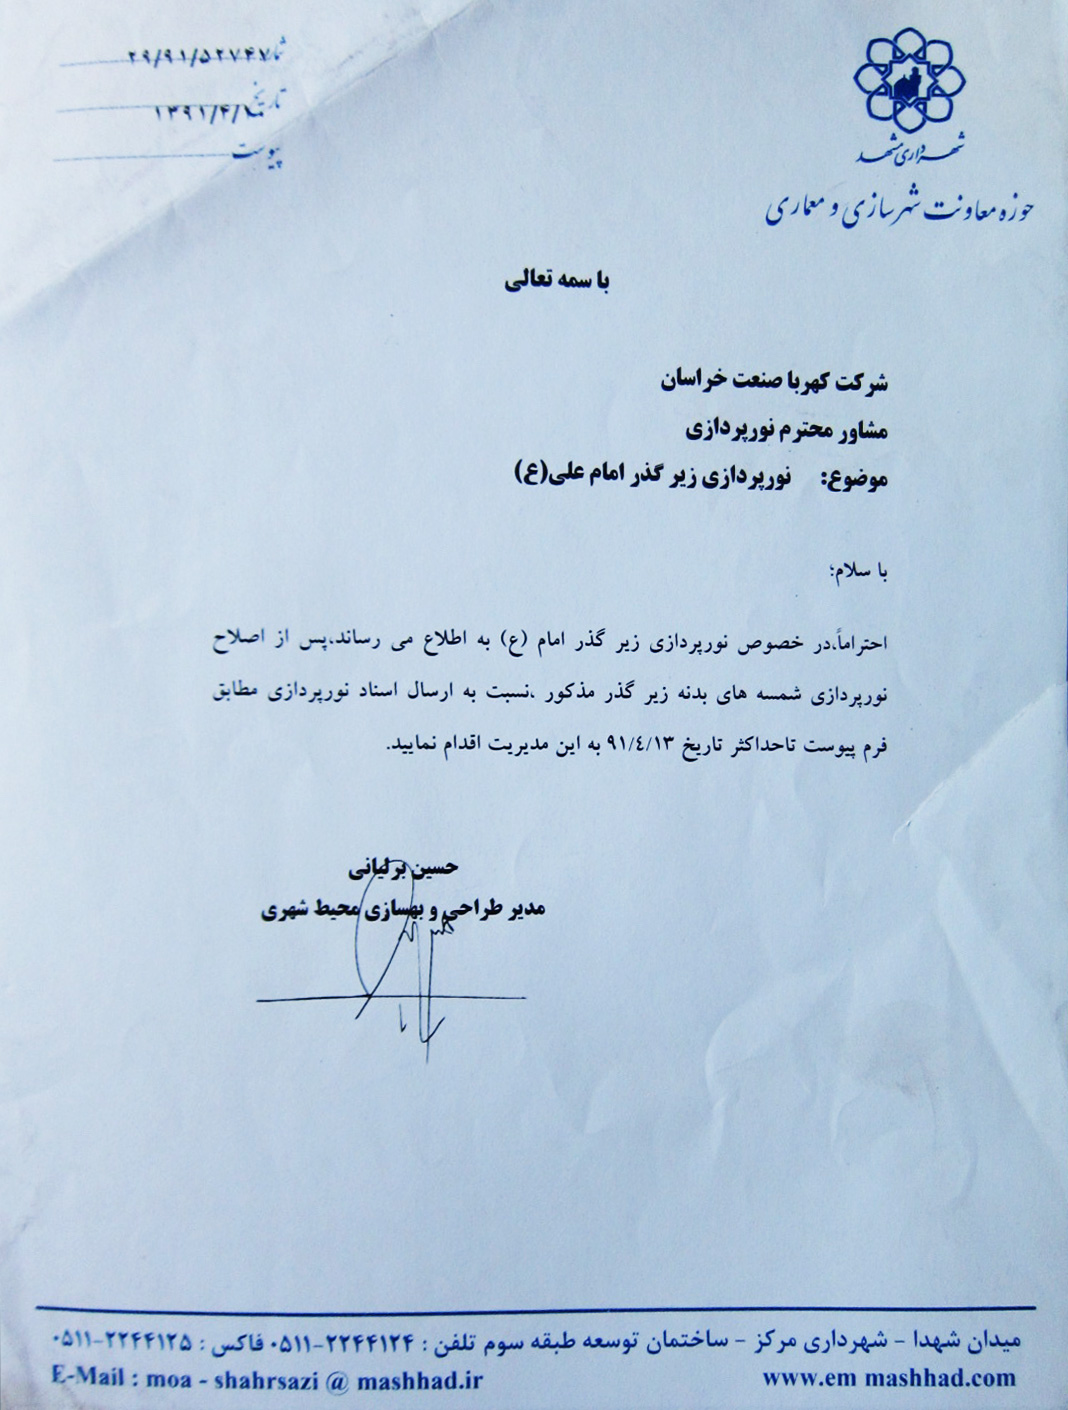 شماره ۲۹/۹۱/۵۲۷۴۷
تاریخ ۱۳۹۱/۴/
پیوست
شهرداری مشهد
حوزه معاونت شهرسازی و معماری
با سمه تعالی
شرکت کهربا صنعت خراسان
مشاور محترم نورپردازی
موضوع: نورپردازی زیر گذر امام علی(ع)
با سلام؛
احتراماً،در خصوص نورپردازی زیر گذر امام (ع) به اطلاع می رساند،پس از اصلاح
نورپردازی شمسه های بدنه زیر گذر مذکور ،نسبت به ارسال اسناد نورپردازی مطابق
فرم پیوست تاحداکثر تاریخ ۹۱/٤/۱۳ به این مدیریت اقدام نمایید.
حسین برلیانی
مدیر طراحی و بهسازی محیط شهری
میدان شهدا - شهرداری مرکز - ساختمان توسعه طبقه سوم تلفن : ۲۲۴۴۱۲۴-۰۵۱۱ فاکس : ۲۲۴۴۱۲۵-۰۵۱۱
E-Mail : moa - shahrsazi @ mashhad.ir www.em mashhad.com